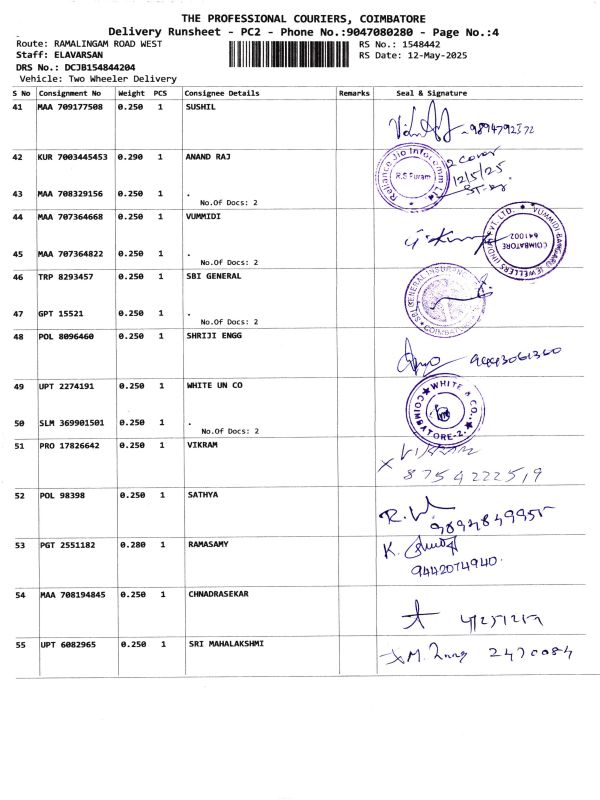 THE PROFESSIONAL COURIERS, COIMBATORE
Delivery Runsheet - PC2 - Phone No.:9047080280 - Page No.:4
Route: RAMALINGAM ROAD WEST RS No.: 1548442
Staff: ELAVARSAN RS Date: 12-May-2025
DRS No.: DCJB154844204
Vehicle: Two Wheeler Delivery
S No Consignment No Weight PCS Consignee Details Remarks Seal & Signature
41 MAA 709177508 0.250 1 SUSHIL
42 KUR 7003445453 0.290 1 ANAND RAJ
Reliance Jio Infocomm Ltd
R.S Puram
2 cover
12/5/25
43 MAA 708329156 0.250 1 .
No.Of Docs: 2
44 MAA 707364668 0.250 1 VUMMIDI
VUMMIDI BANGARU JEWELLERS (INDIA) PVT. LTD.
COIMBATORE
641002
45 MAA 707364822 0.250 1 .
No.Of Docs: 2
46 TRP 8293457 0.250 1 SBI GENERAL
SBI GENERAL INSURANCE
COIMBATORE
47 GPT 15521 0.250 1 .
No.Of Docs: 2
48 POL 8096460 0.250 1 SHRIJI ENGG
9443061360
49 UPT 2274191 0.250 1 WHITE UN CO
WHITE & CO.,
COIMBATORE-2.
50 SLM 369901501 0.250 1 .
No.Of Docs: 2
51 PRO 17826642 0.250 1 VIKRAM
x VIKRAM
8754222519
52 POL 98398 0.250 1 SATHYA
53 PGT 2551182 0.280 1 RAMASAMY
9442074940.
54 MAA 708194845 0.250 1 CHNADRASEKAR
55 UPT 6082965 0.250 1 SRI MAHALAKSHMI
2470084